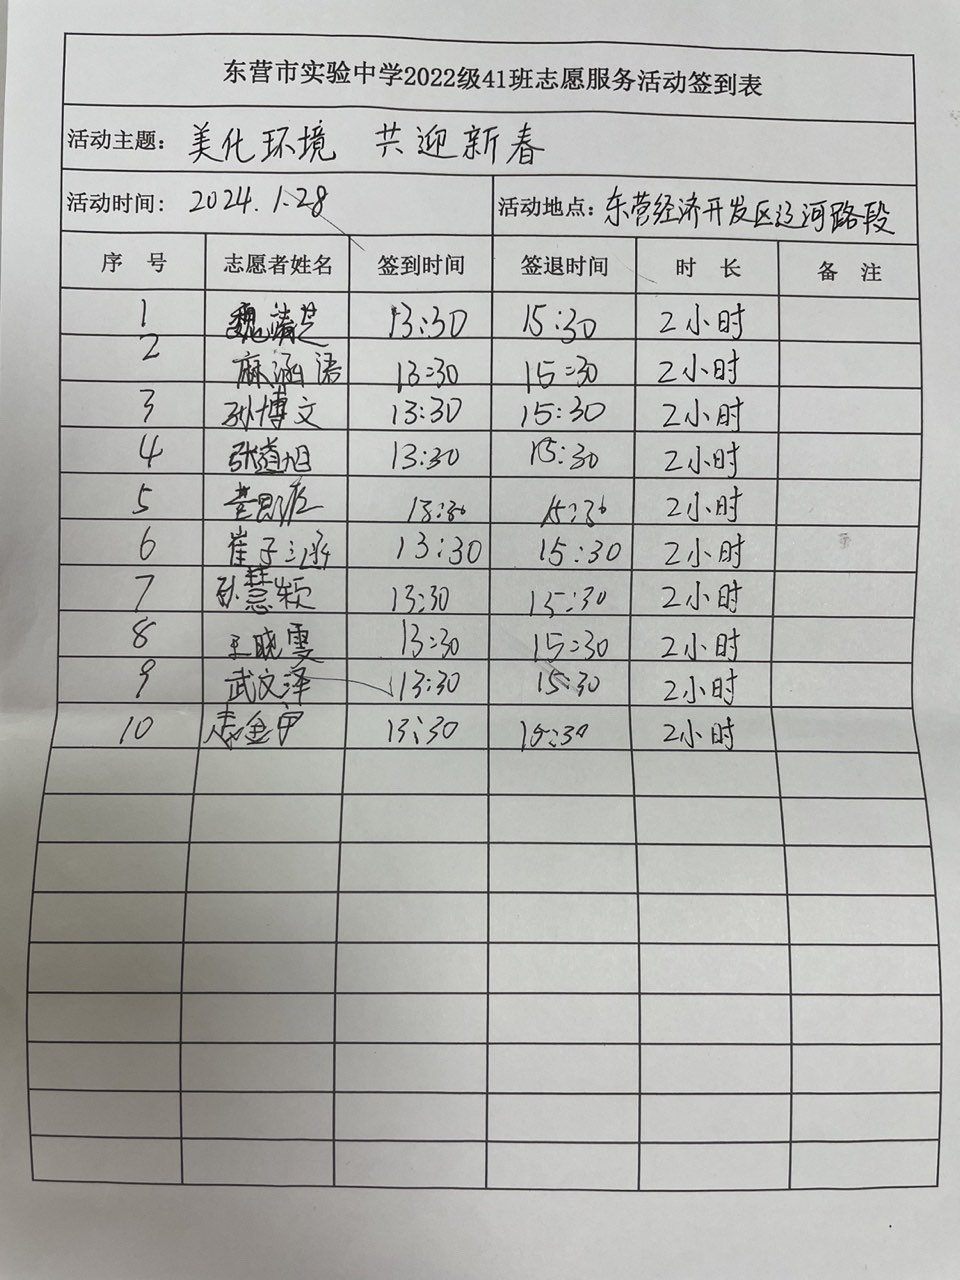 东营市实验中学2022级41班志愿服务活动签到表
活动主题： 美化环境 共迎新春
活动时间： 2024.1.28 活动地点：东营经济开发区辽河路段
序 号 志愿者姓名 签到时间 签退时间 时 长 备 注
1 魏清芝 13:30 15:30 2小时
2 麻涵语 13:30 15:30 2小时
3 孙博文 13:30 15:30 2小时
4 张道旭 13:30 15:30 2小时
5 13:30 15:30 2小时
6 崔子涵 13:30 15:30 2小时
7 孙慧颖 13:30 15:30 2小时
8 王晓雯 13:30 15:30 2小时
9 武文泽 13:30 15:30 2小时
10 13:30 15:30 2小时